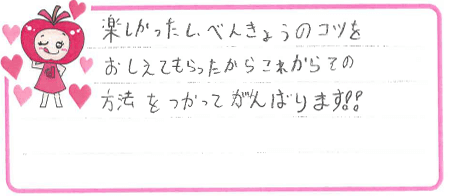 楽しかったし、べんきょうのコツを
おしえてもらったからこれからその
方法をつかってがんばります!!